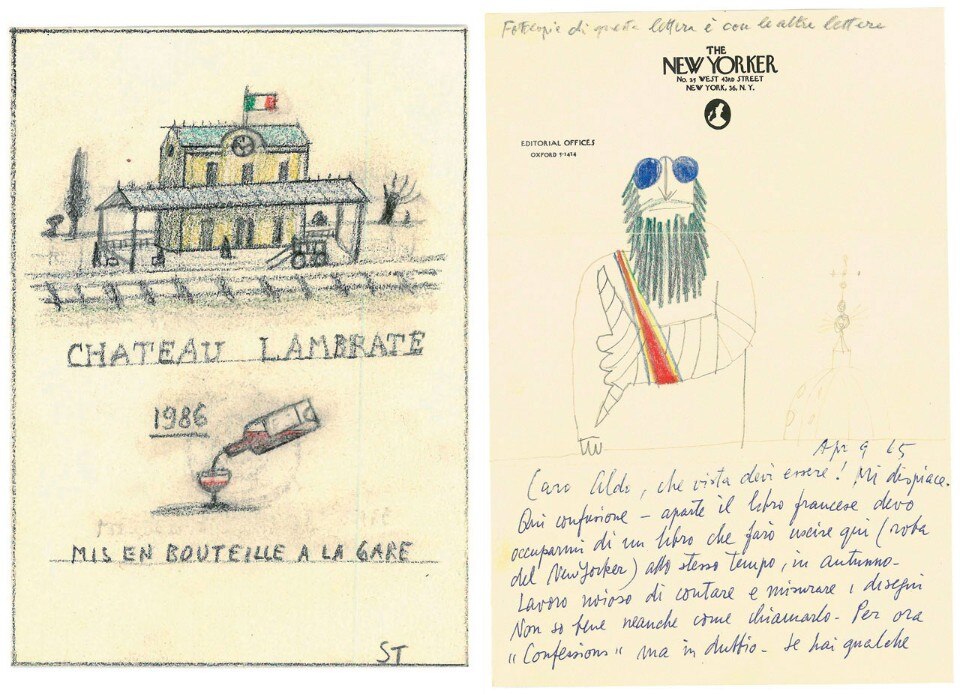 CHATEAU LAMBRATE
1986
MIS EN BOUTEILLE A LA GARE
ST
Fotocopia di questa lettera è con le altre lettere
THE
NEW YORKER
No. 25 WEST 43RD STREET
NEW YORK, 36, N. Y.
EDITORIAL OFFICES
OXFORD 5-1414
Apr 9 65
Caro Aldo, che vista devi essere! Mi dispiace.
Qui confusione – aparte il libro francese devo
occuparmi di un libro che farò uscire qui (roba
del New Yorker) allo stesso tempo, in autunno.
Lavoro noioso di contare e misurare i disegni
Non so bene neanche come chiamarlo. Per ora
"Confessions" ma in dubbio. Se hai qualche